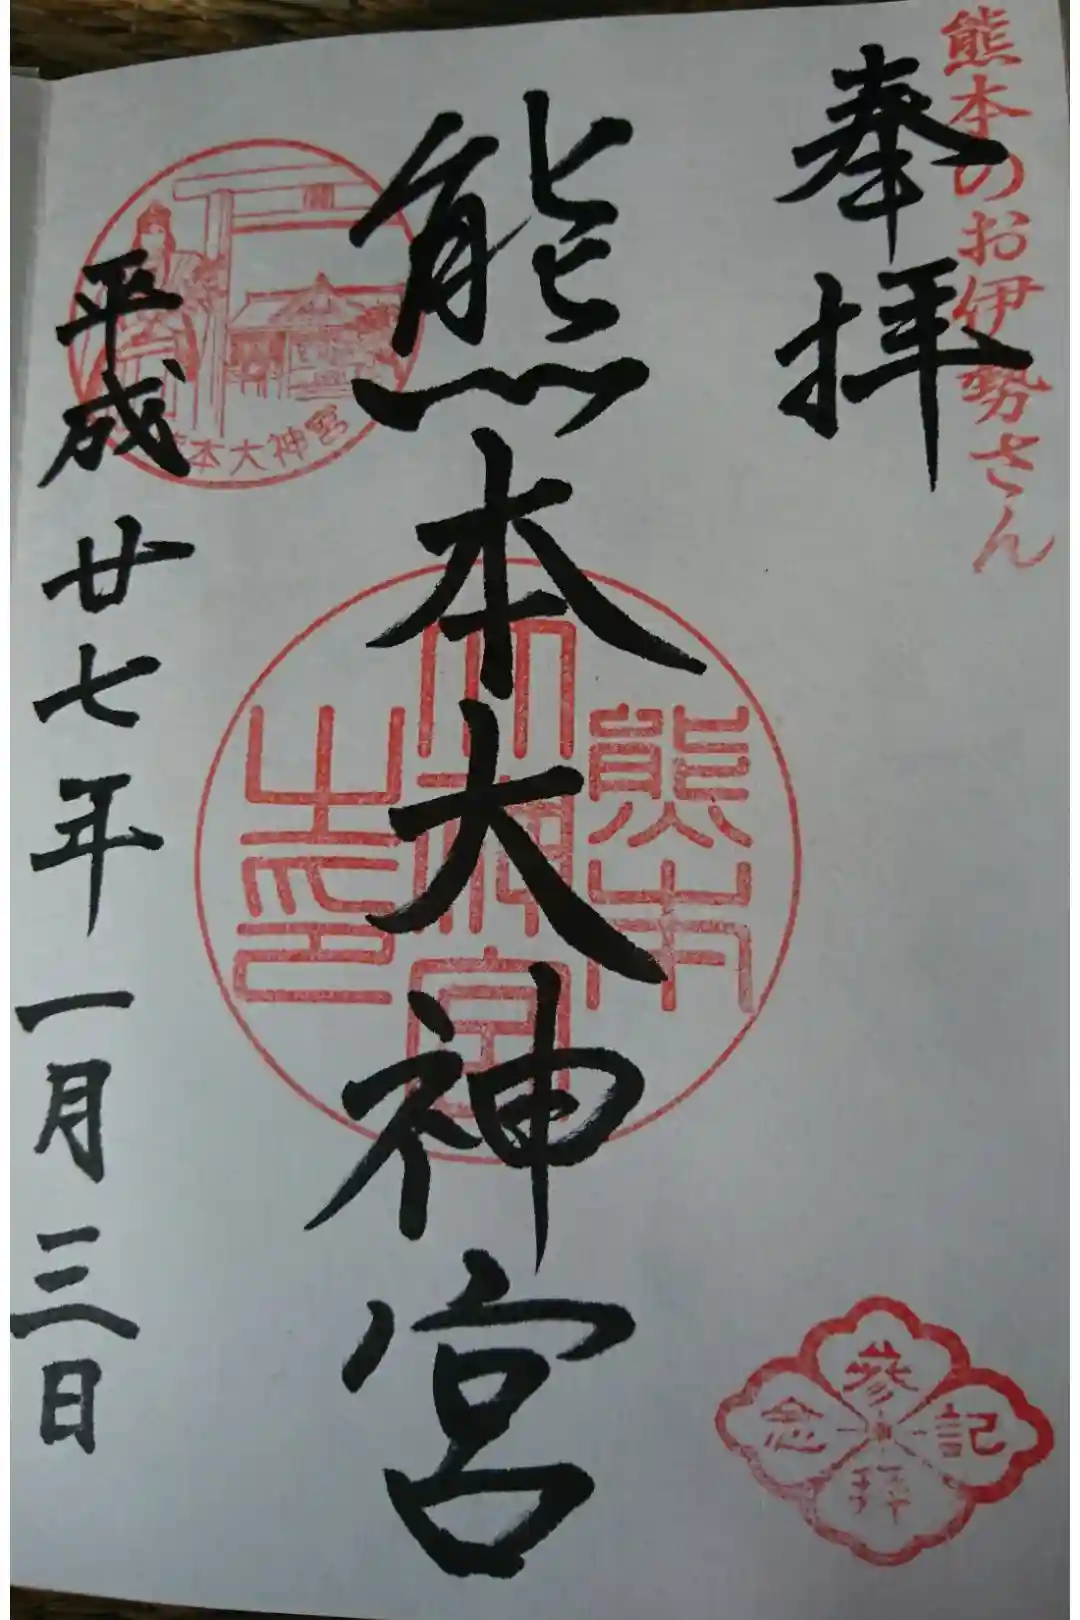 熊本のお伊勢さん
奉拝
熊本大神宮
熊本
大神宮
之印
熊本大神宮
平成廿七年一月三日
参拝
記念